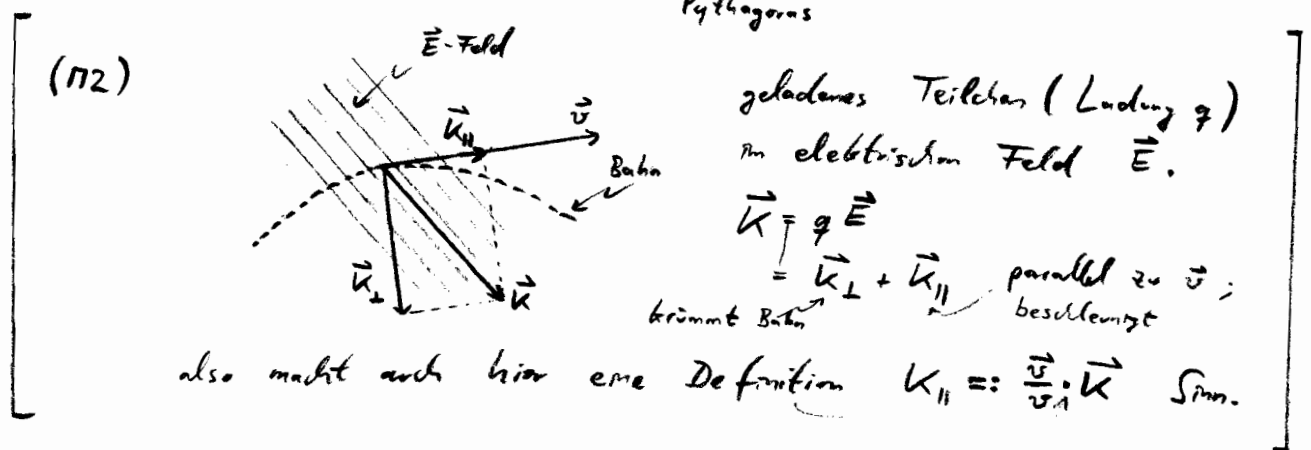 Pythagoras
(M2)
E⃗-Feld
K⃗∥
v⃗
Bahn
K⃗⊥
K⃗
geladenes Teilchen (Ladung q)
im elektrischen Feld E⃗.
K⃗ = q E⃗
= K⃗⊥ + K⃗∥ parallel zu v⃗ ;
krümmt Bahn
beschleunigt
also macht auch hier eine Definition K∥ =: v⃗/v · K⃗ Sinn.